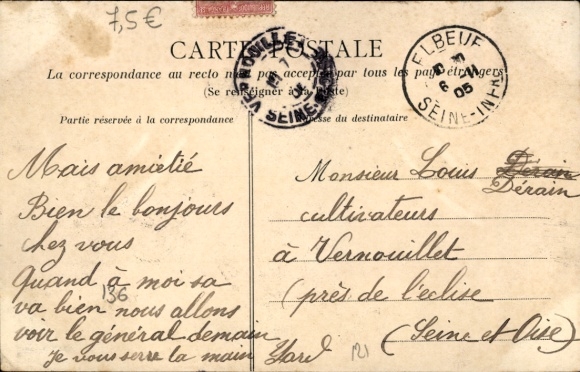 7,5 €
CARTE POSTALE
La correspondance au recto n'est pas acceptée par tous les pays étrangers
(Se renseigner à la Poste)
Partie réservée à la correspondance
Adresse du destinataire
VERNOUILLET
SEINE-
ELBEUF
6
05
SEINE-INFRE
Mais amietié
Bien le bonjours
chez vous
Quand à moi sa
va bien nous allons
voir le général demain
Je vous serre la main
136
Monsieur Louis Dérain
Dérain
cultivateurs
à Vernouillet
(près de l'éclise
(Seine et Oise)
121